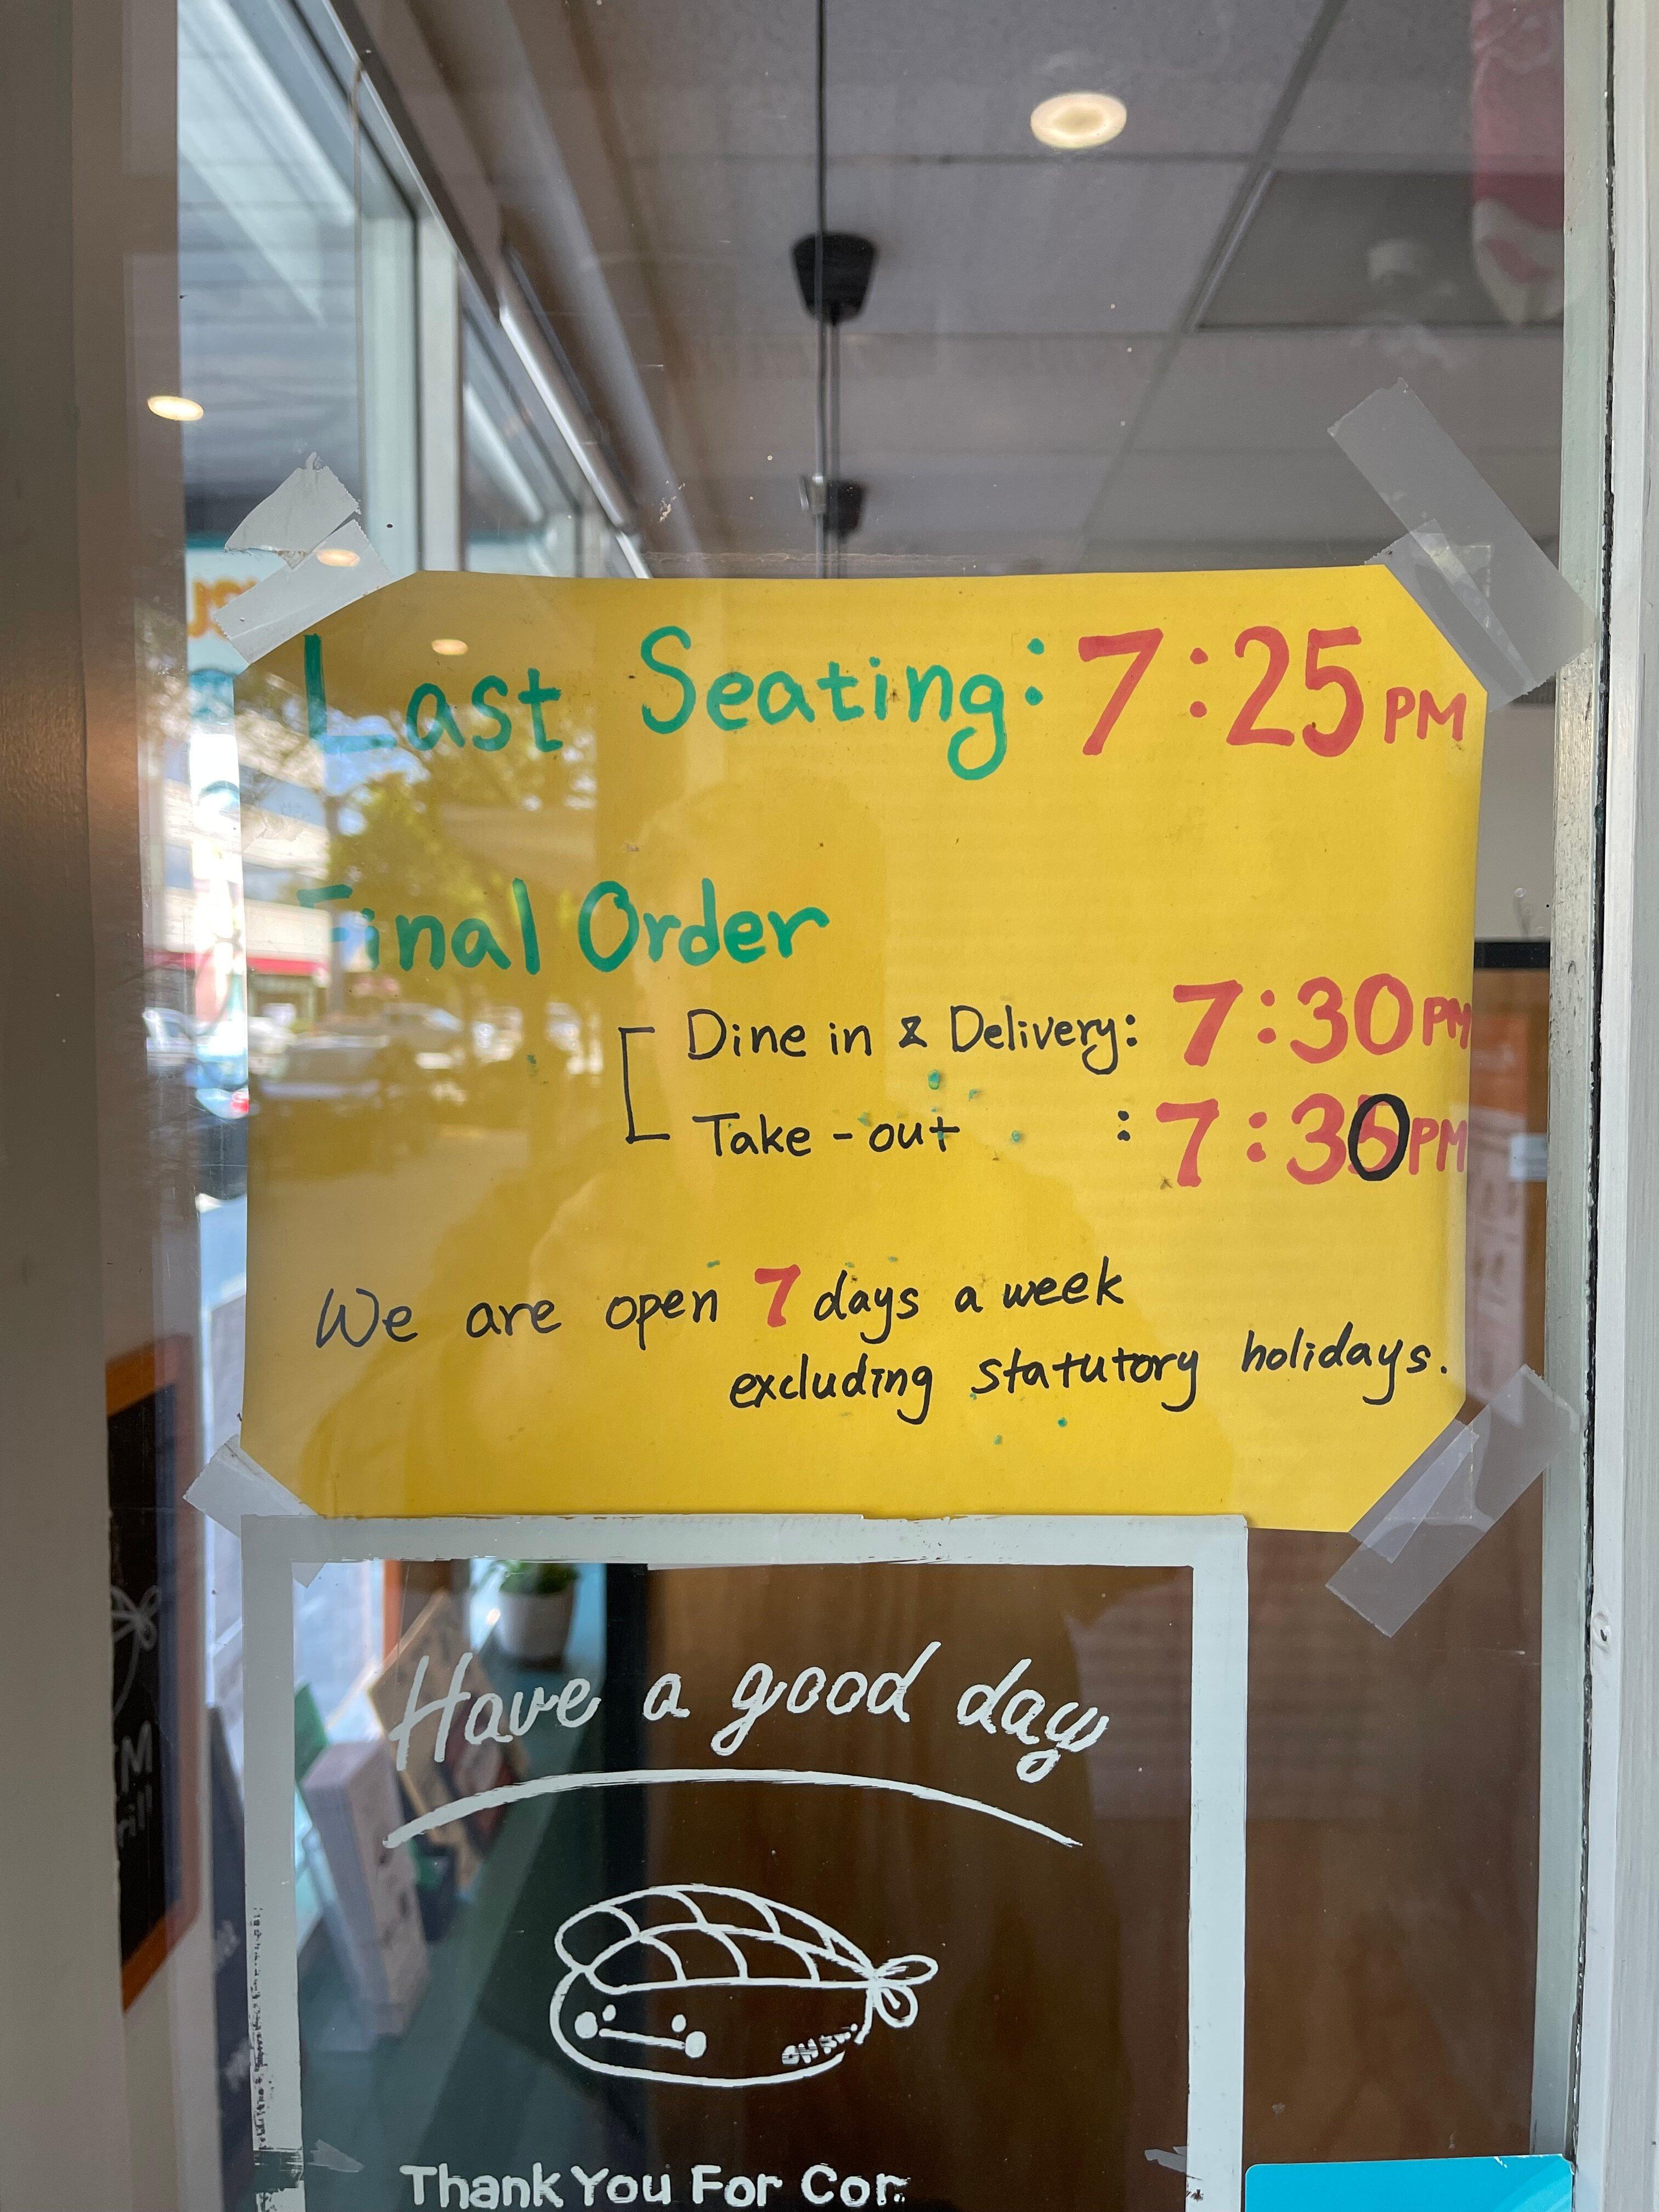 Last Seating: 7:25 PM
Final Order
Dine in & Delivery: 7:30 PM
Take-out : 7:30 PM
We are open 7 days a week
excluding statutory holidays.
Have a good day
Thank You For